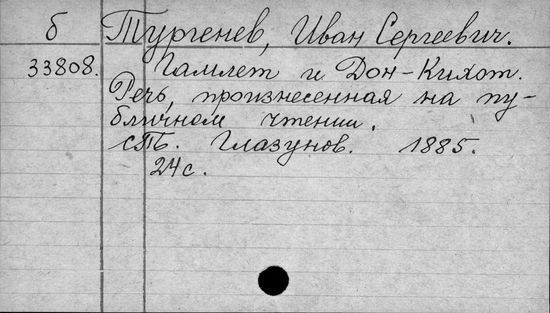 б Тургенев, Иван Сергеевич.
33808. Гамлет и Дон-Кихот.
Речь, произнесенная на пу-
бличном чтении.
СПб. Глазунов. 1885.
24 с.